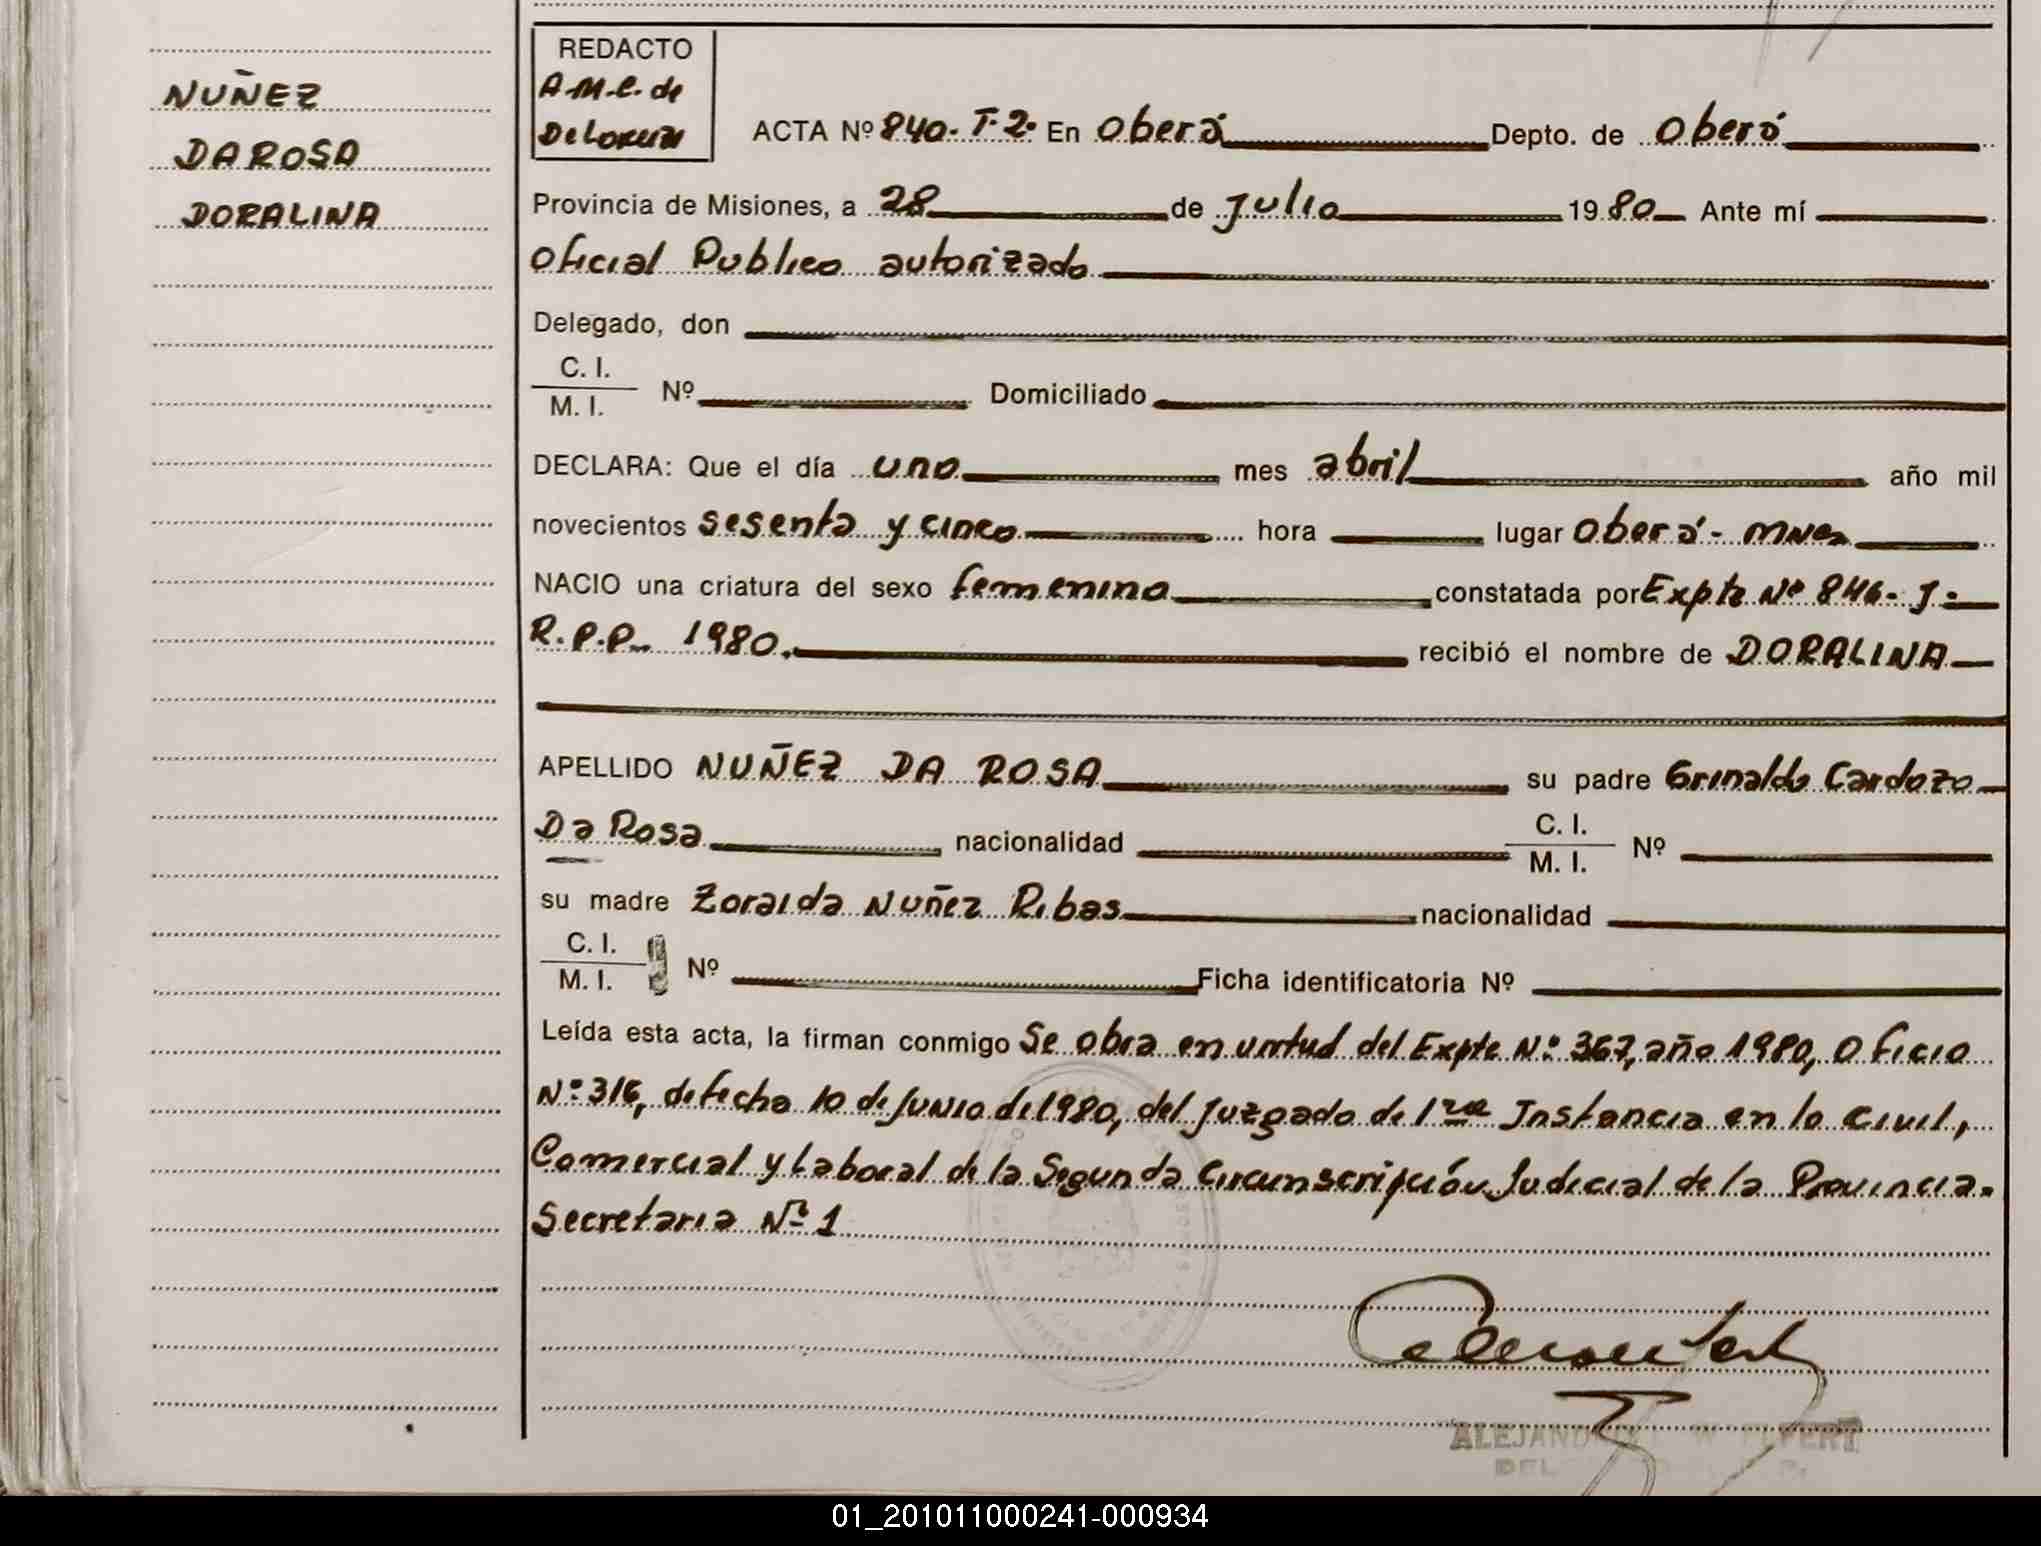 NUÑEZ
DA ROSA
DORALINA
REDACTO
A.M.C. de
ACTA Nº 840- T-2- En Oberá Depto. de Oberá
Provincia de Misiones, a 28 de julio 1980 Ante mí
Oficial Publico autorizado
Delegado, don
C. I.
M. I. Nº Domiciliado
DECLARA: Que el día uno mes abril año mil
novecientos sesenta y cinco hora lugar Oberá- Mnes
NACIO una criatura del sexo femenino constatada por Expte Nº 846- J-
R.P.P. 1980. recibió el nombre de DORALINA
APELLIDO NUÑEZ DA ROSA su padre Grinaldo Cardozo
Da Rosa nacionalidad C. I.
M. I. Nº
su madre Zoraida Nuñez Ribas nacionalidad
C. I.
M. I. Nº Ficha identificatoria Nº
Leída esta acta, la firman conmigo Se obra en virtud del Expte Nº 367, año 1980, Oficio
Nº 316, de fecha 10 de Junio de 1980, del Juzgado de 1ra Instancia en lo Civil,
Comercial y Laboral de la Segunda Circunscripción Judicial de la Provincia.
Secretaria Nº 1
01_201011000241-000934